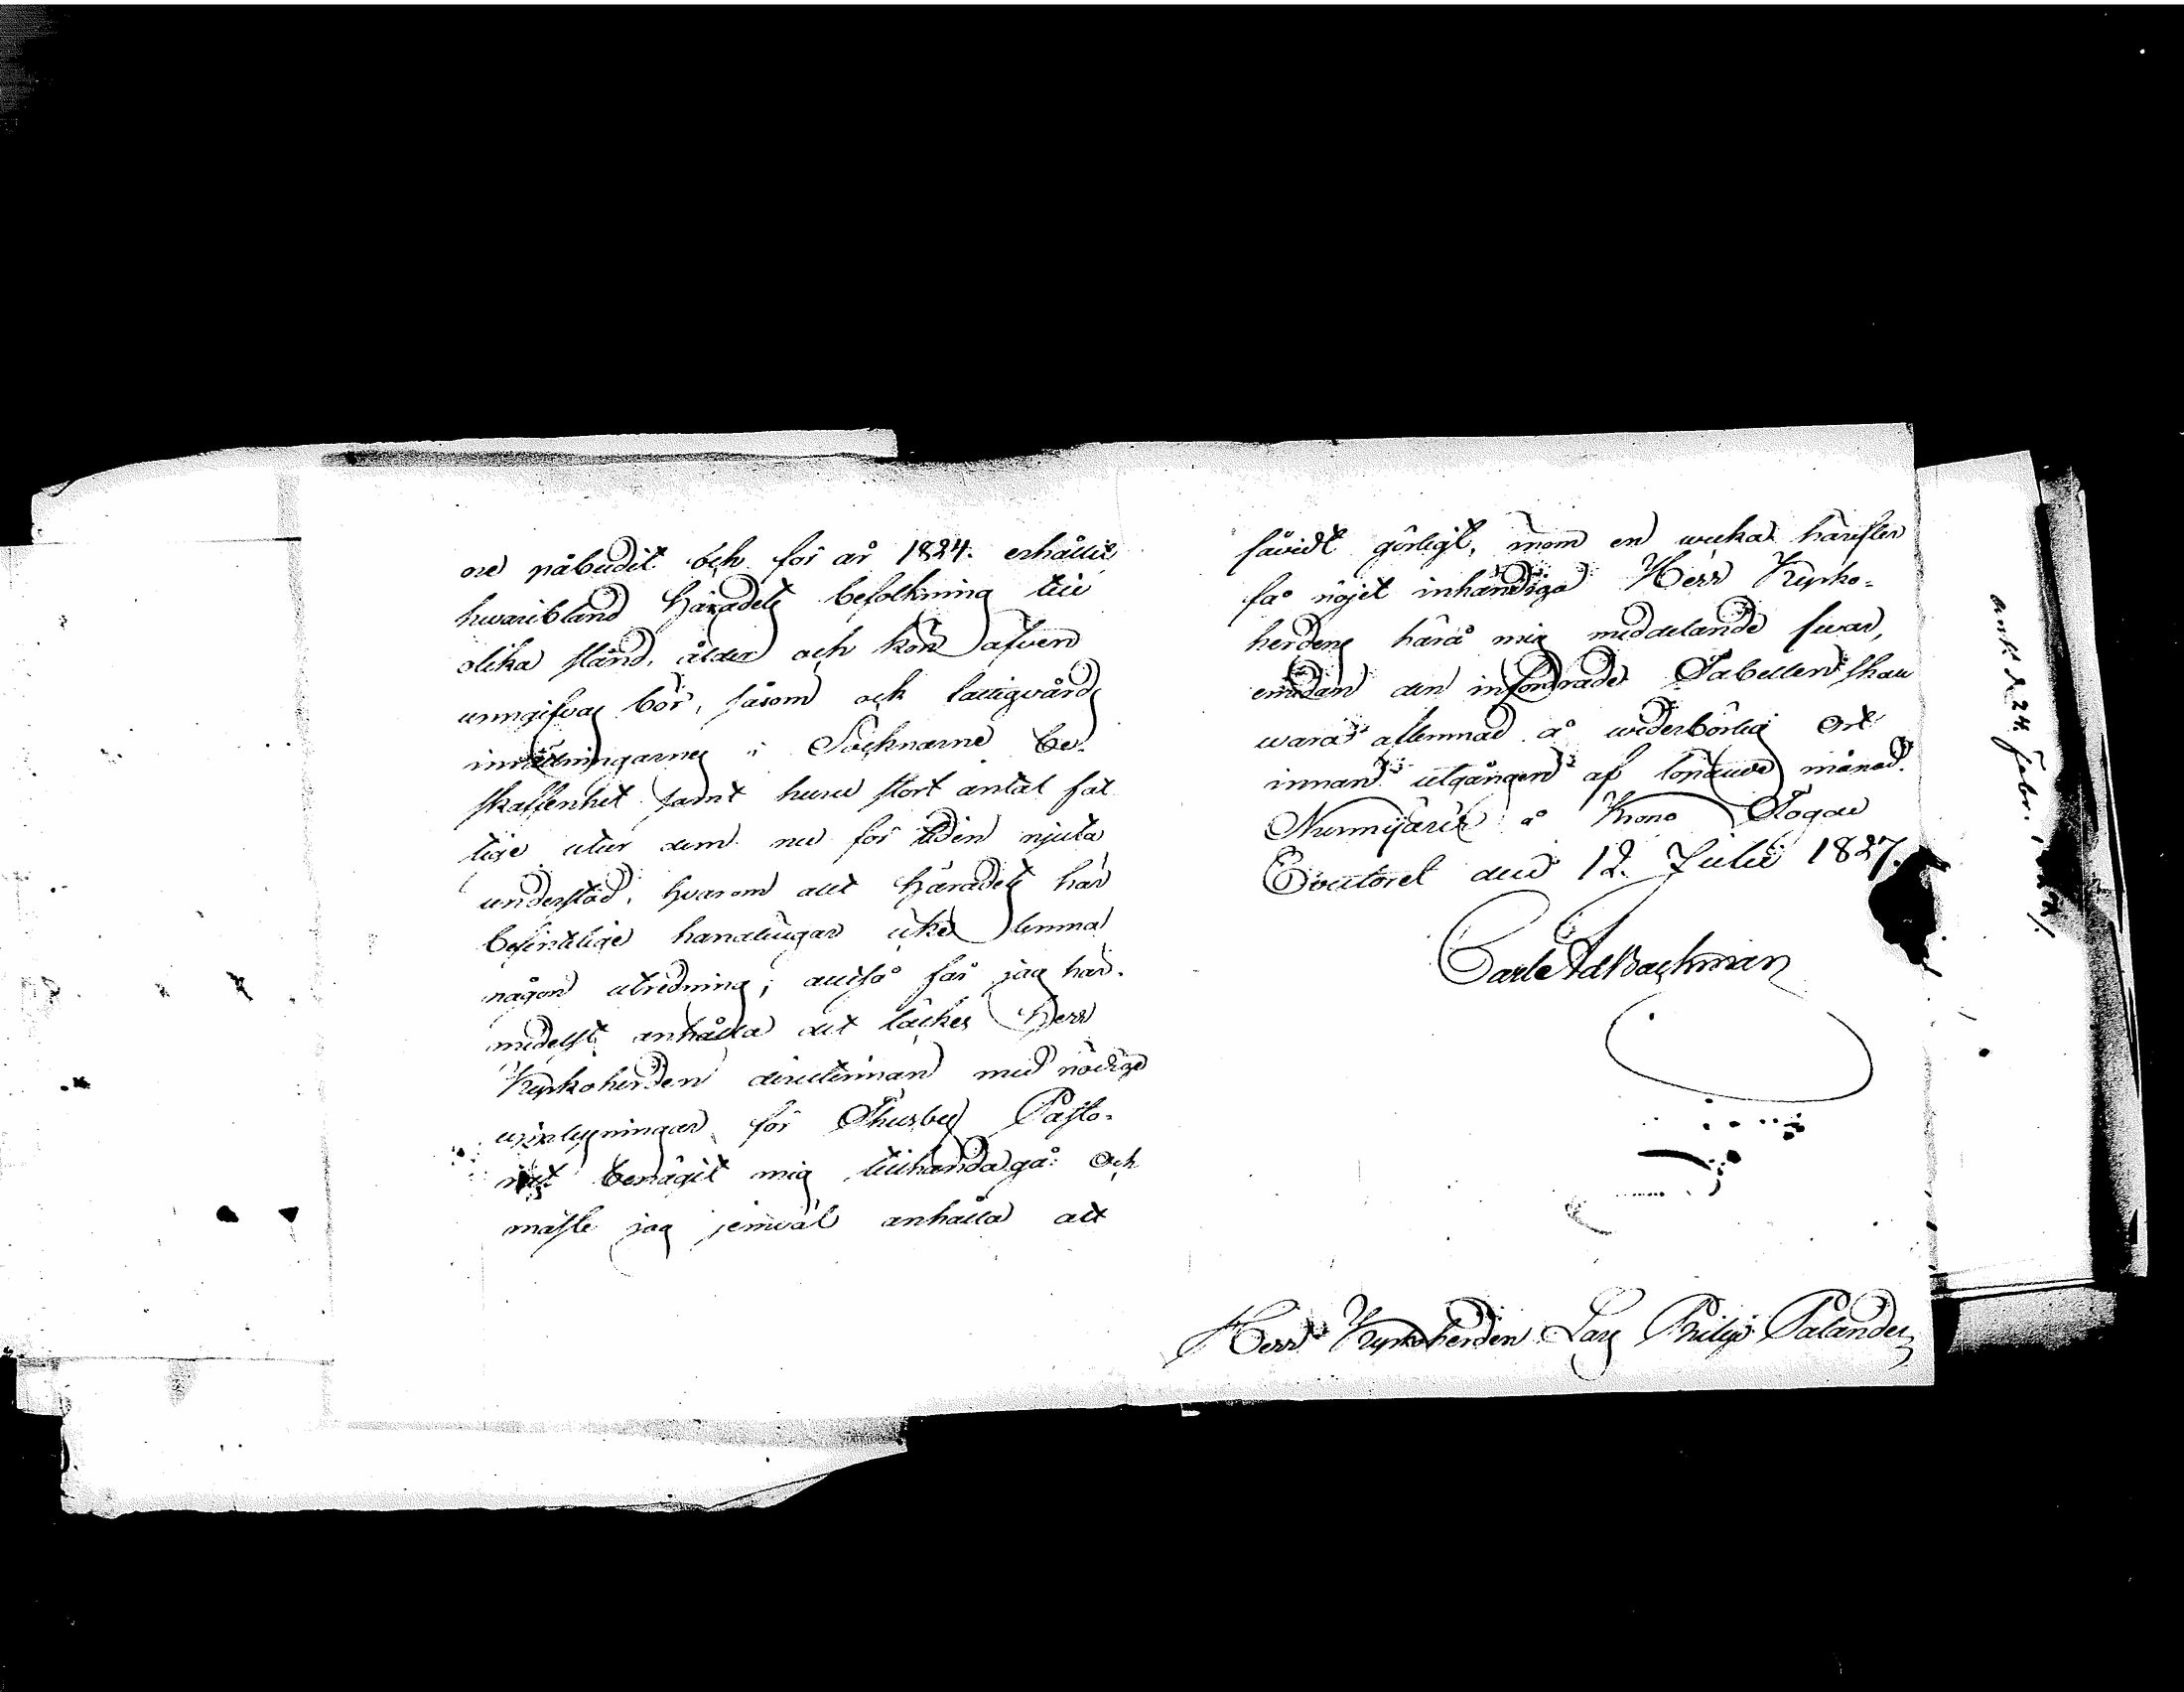 ore påbudit och för år 1824. erhållit
hwaribland Häradets befolkning till
olika stånd, ålder och kön äfven
unngifvas bör, såsom och fattigvårds
inrättningarnes i Socknarne be-
skaffenhet samt huru stort antal fat
tige utur dem nu för tiden njuta
understöd, hvarom alt Häradets här
befintelige handlingar icke lemna
någon utredning; altså får jag här-
medelst anhålla det täckes Herr
Kyrkoherden derutinnan med nödige
upplysningar för Thusby Pasto-
rat benägit mig tillhanda gå. Och
måste jag jemväl anhålla att
såvidt görligt, inom en wicka härefter
få nöjet inhändiga Herr Kyrko-
herdens härå mig meddelande swar,
emedan den infordrade Tabellen skall
wara aflemnad å wederbörlig Ort
innan utgången af löpande månad.
Nurmijärvi å Krono Fogde
Contoret den 12. Julii 1827.
Carl Ad Backman
Herr Kyrkoherden Lars Philip Palander
ank. d. 24 Febr.